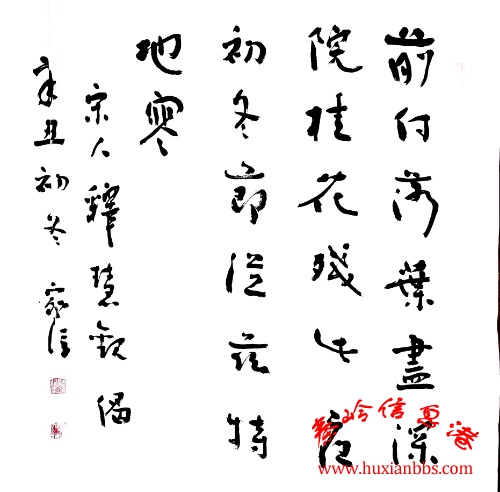 前村落葉盡深
院桂花殘此夜
初冬節從茲特
地寒
宋人釋慧觀偈
辛丑初冬 家信
信息港
www.huxianbbs.com